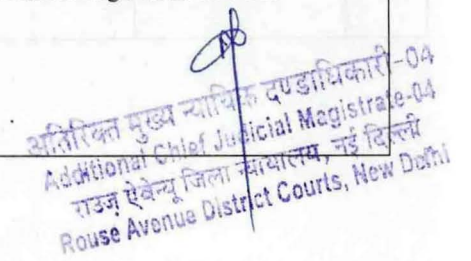 अतिरिक्त मुख्य न्यायिक दण्डाधिकारी-04
Additional Chief Judicial Magistrate-04
राउज़ ऐवेन्यू जिला न्यायालय, नई दिल्ली
Rouse Avenue District Courts, New Delhi